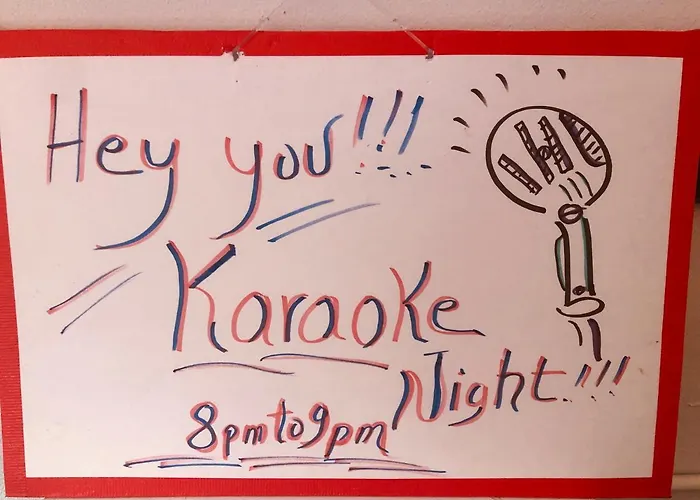 Hey you!!!
Karaoke
Night!!!
8pm to 9pm